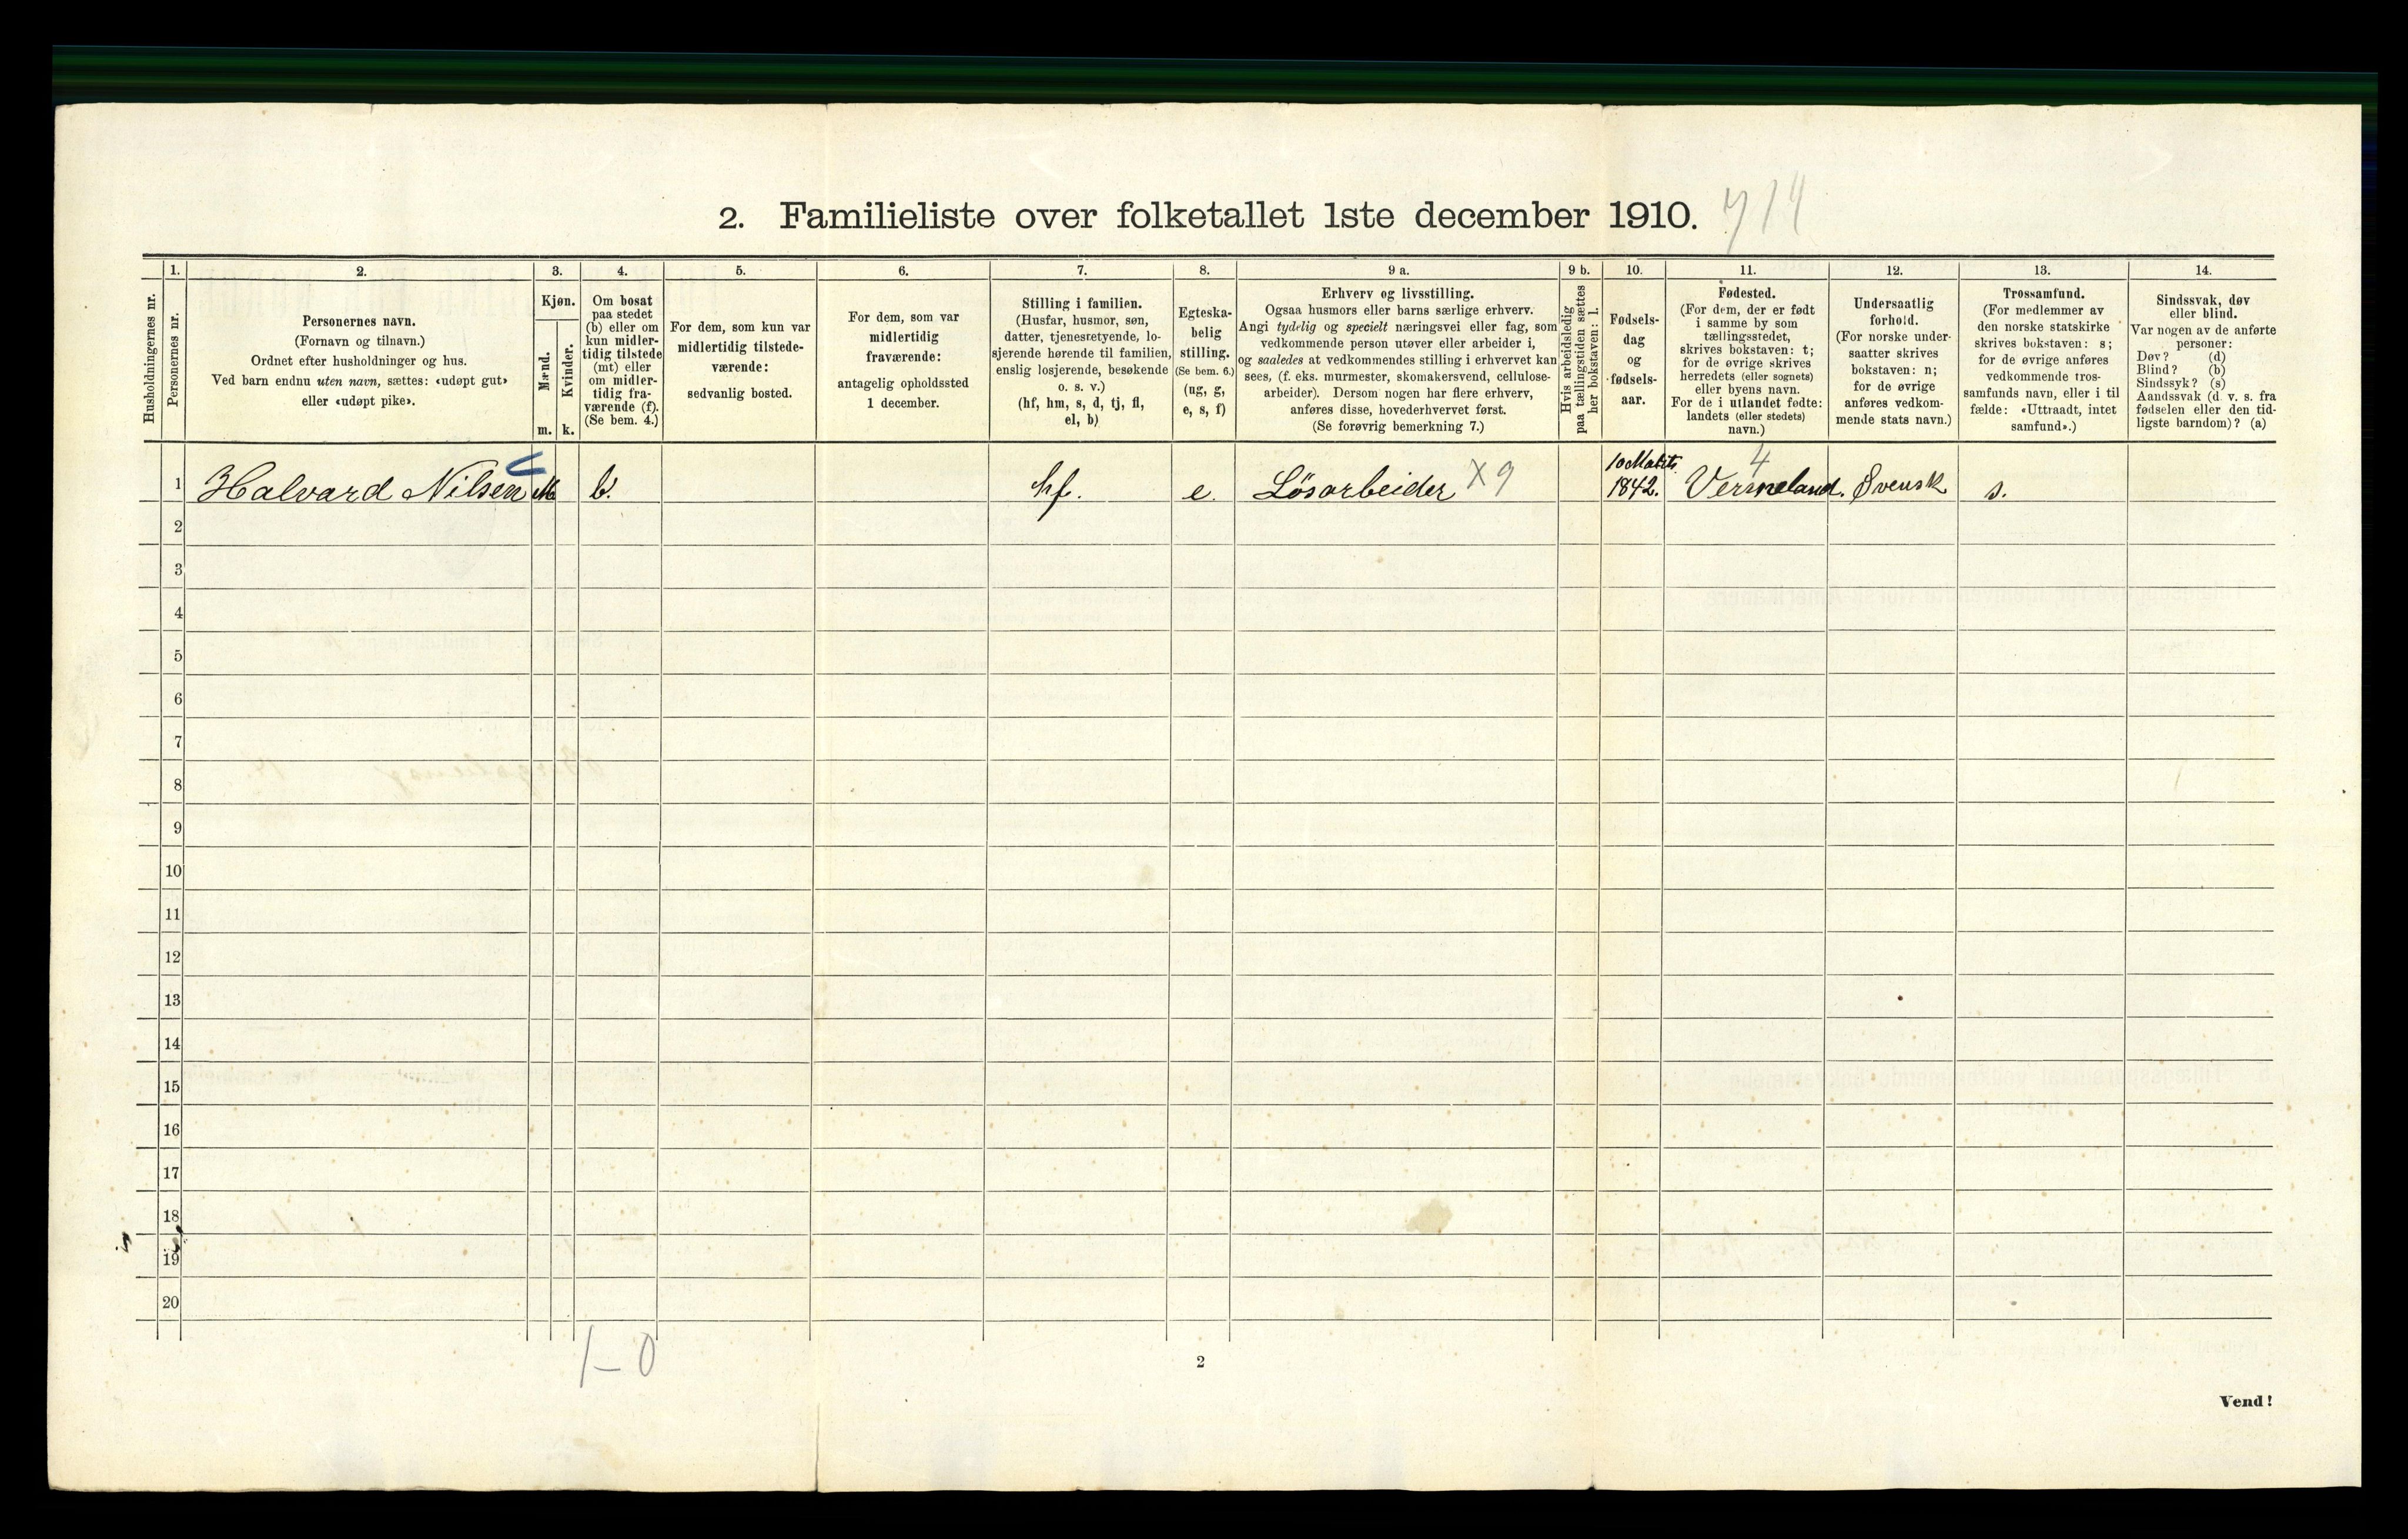 2. Familieliste over folketallet 1ste december 1910. 714
Husholdningernes nr.
1.
Personernes nr.
2.
Personernes navn.
(Fornavn og tilnavn.)
Ordnet efter husholdninger og hus.
Ved barn endnu uten navn, sættes: «udøpt gut»
eller «udøpt pike».
3.
Kjøn.
Mænd.
m.
Kvinder.
k.
4.
Om bosat
paa stedet
(b) eller om
kun midler-
tidig tilstede
(mt) eller
om midler-
tidig fra-
værende (f).
(Se bem. 4.)
5.
For dem, som kun var
midlertidig tilstede-
værende:
sedvanlig bosted.
6.
For dem, som var
midlertidig
fraværende:
antagelig opholdssted
1 december.
7.
Stilling i familien.
(Husfar, husmor, søn,
datter, tjenestetyende, lo-
sjerende hørende til familien,
enslig losjerende, besøkende
o. s. v.)
(hf, hm, s, d, tj, fl,
el, b)
8.
Egteska-
belig
stilling.
(Se bem. 6.)
(ug, g,
e, s, f)
9 a.
Erhverv og livsstilling.
Ogsaa husmors eller barns særlige erhverv.
Angi tydelig og specielt næringsvei eller fag, som
vedkommende person utøver eller arbeider i,
og saaledes at vedkommendes stilling i erhvervet kan
sees, (f. eks. murmester, skomakersvend, cellulose-
arbeider). Dersom nogen har flere erhverv,
anføres disse, hovederhvervet først.
(Se forøvrig bemerkning 7.)
9 b.
Hvis arbeidsledig
paa tællingstiden sættes
her bokstaven: l.
10.
Fødsels-
dag
og
fødsels-
aar.
11.
Fødested.
(For dem, der er født
i samme by som
tællingsstedet,
skrives bokstaven: t;
for de øvrige skrives
herredets (eller sognets)
eller byens navn.
For de i utlandet fødte:
landets (eller stedets)
navn.)
12.
Undersaatlig
forhold.
(For norske under-
saatter skrives
bokstaven: n;
for de øvrige
anføres vedkom-
mende stats navn.)
13.
Trossamfund.
(For medlemmer av
den norske statskirke
skrives bokstaven: s;
for de øvrige anføres
vedkommende tros-
samfunds navn, eller i til
fælde: «Uttraadt, intet
samfund».)
14.
Sindssvak, døv
eller blind.
Var nogen av de anførte
personer:
Døv? (d)
Blind? (b)
Sindssyk? (s)
Aandssvak (d. v. s. fra
fødselen eller den tid-
ligste barndom)? (a)
1 Halvard Nilsen M b. hf. e. Løsarbeider X9 1842. Vermeland. Svensk s.
4
2
3
4
5
6
7
8
9
10
11
12
13
14
15
16
17
18
19
20
1-0
2
Vend!